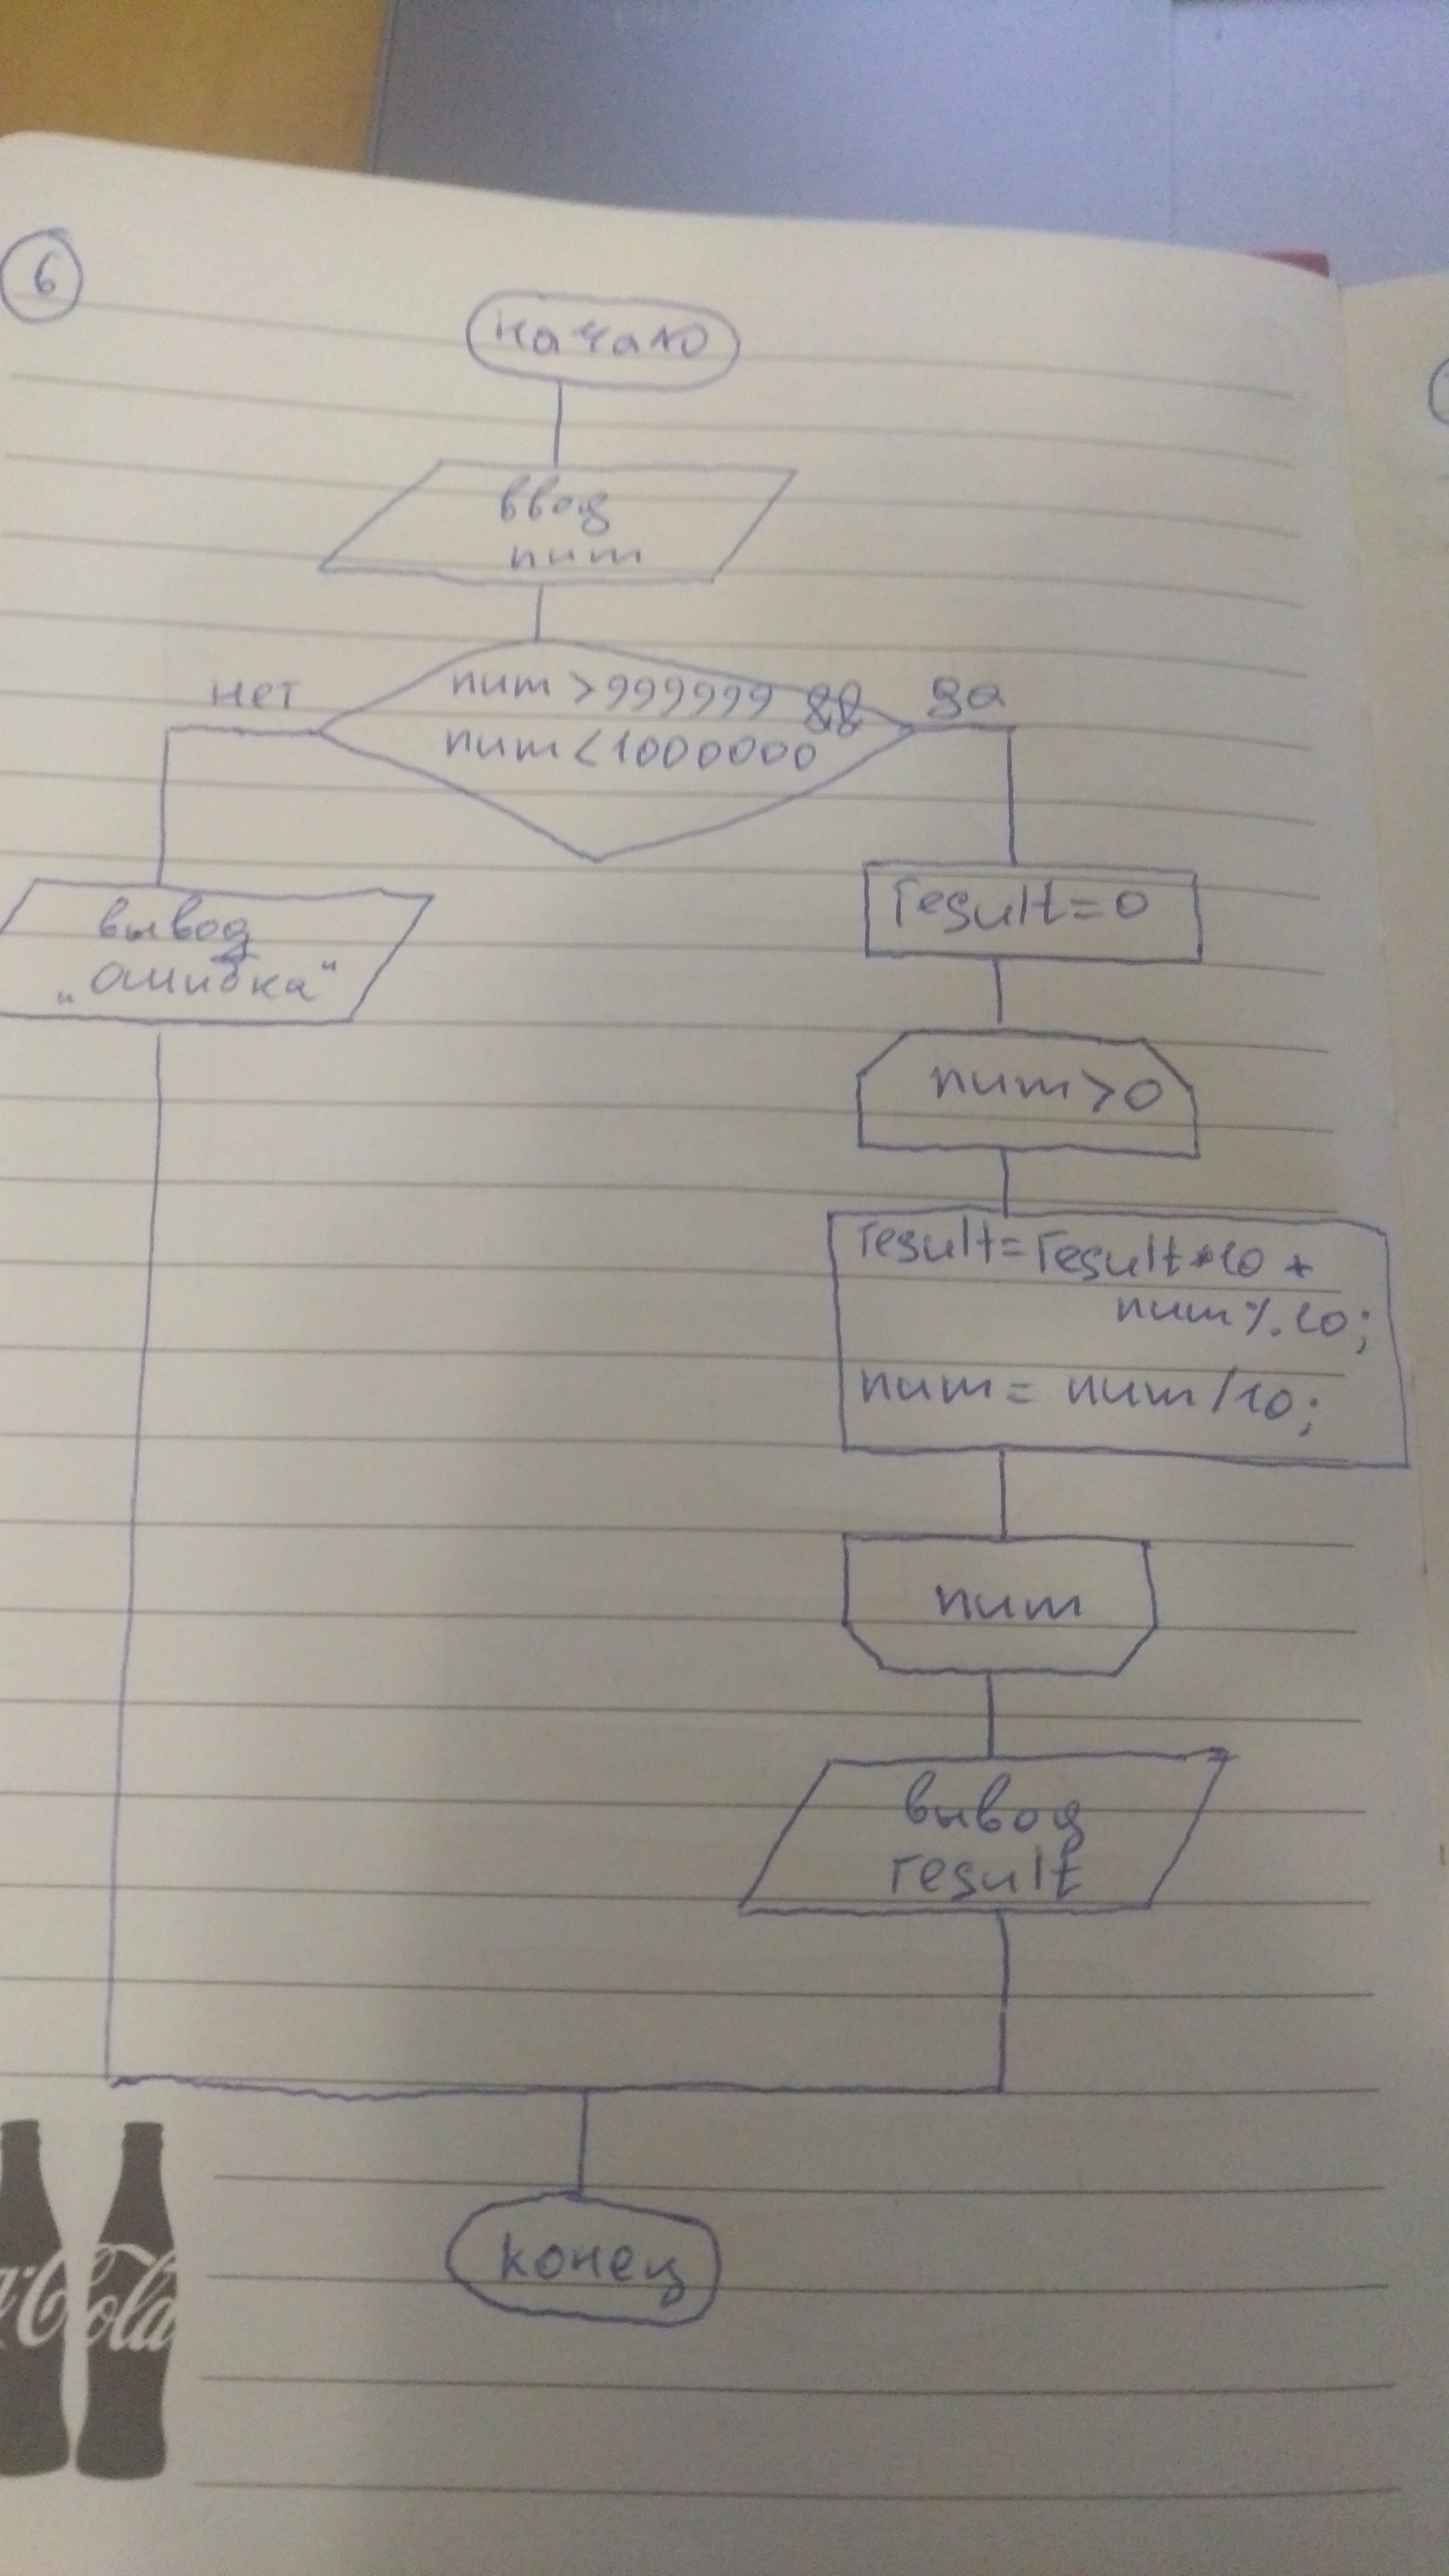 6
начало
ввод
num
num > 999999 &&
num < 1000000
нет
да
вывод
„ошибка“
result=0
num>0
result=result*10 +
num%10;
num = num/10;
num
вывод
result
конец
Cola